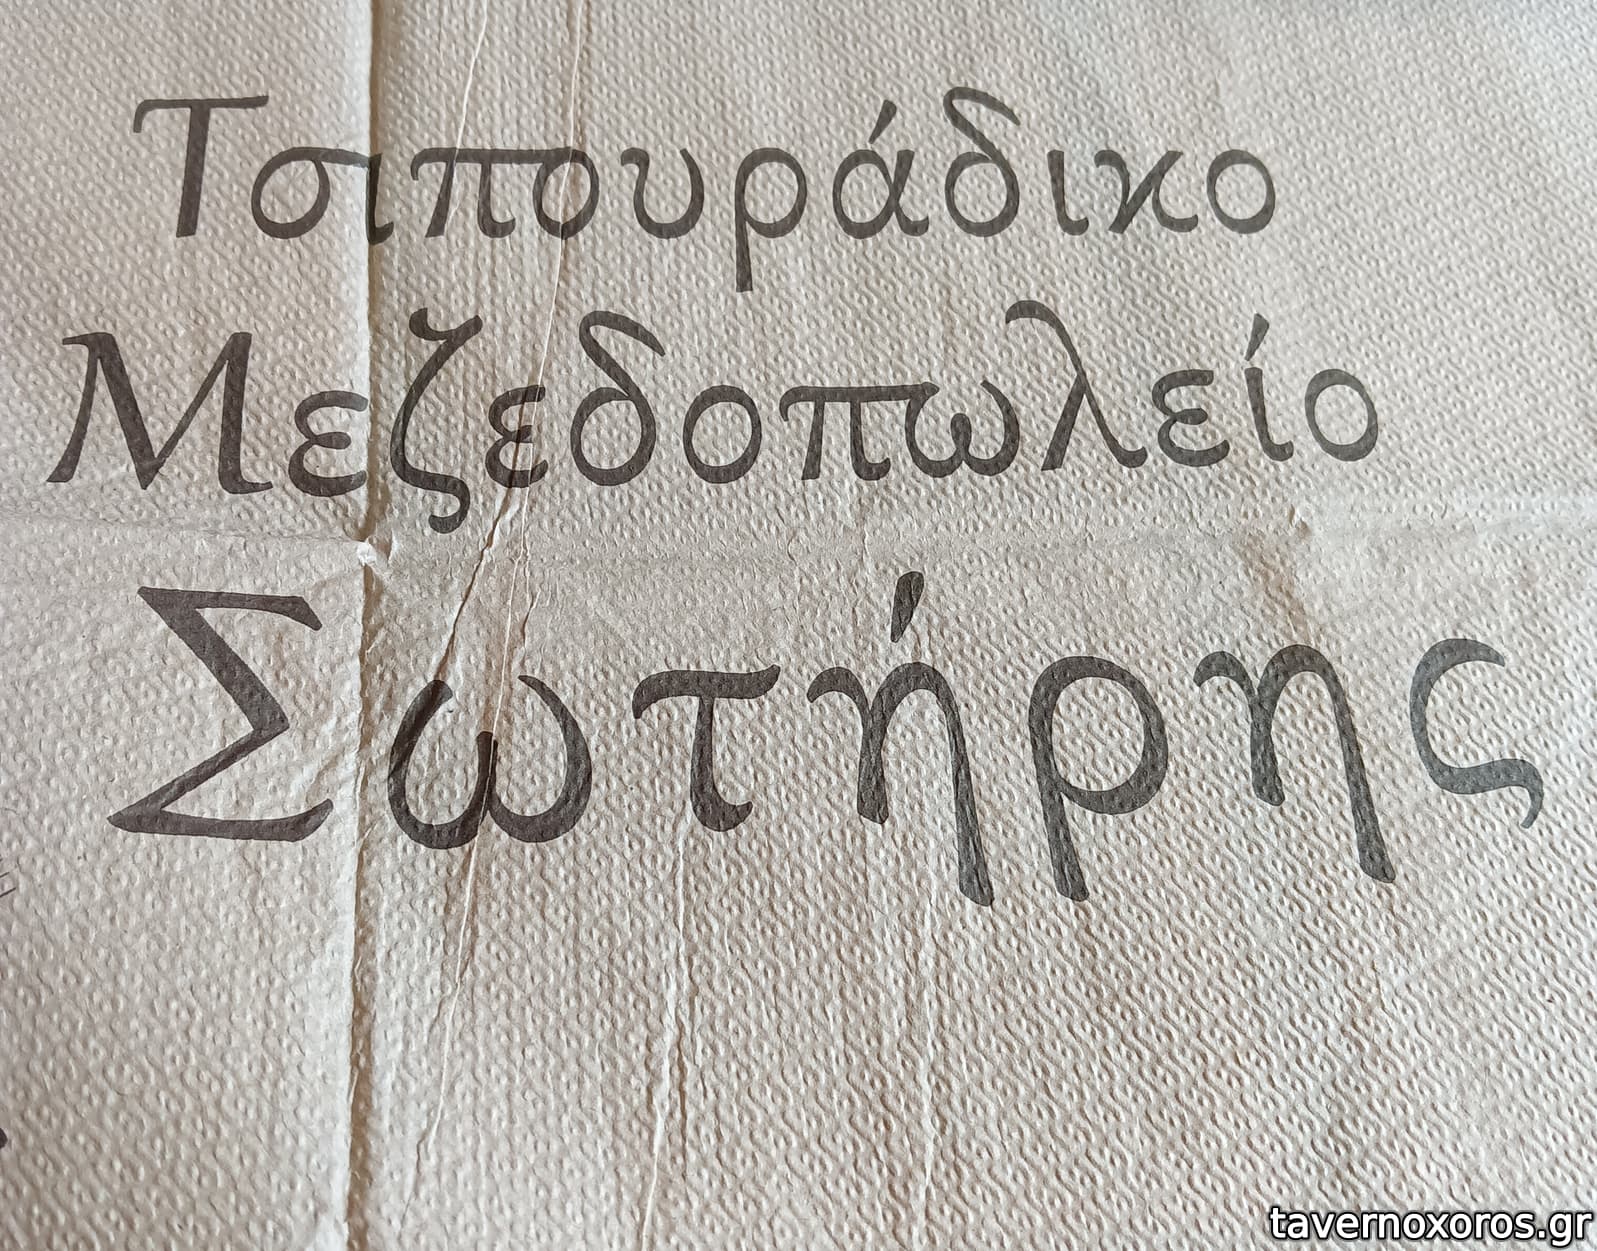 Τσιπουράδικο
Μεζεδοπωλείο
Σωτήρης
tavernoxoros.gr